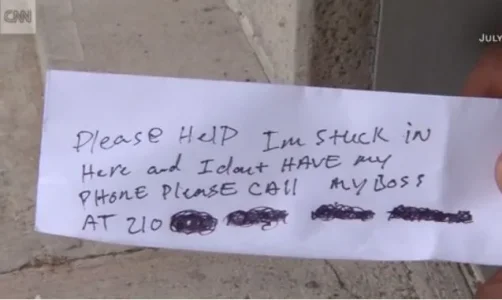 CNN
JULY
Please Help Im stuck in
Here and I dont HAVE my
PHONE Please CAll my Boss
AT 210